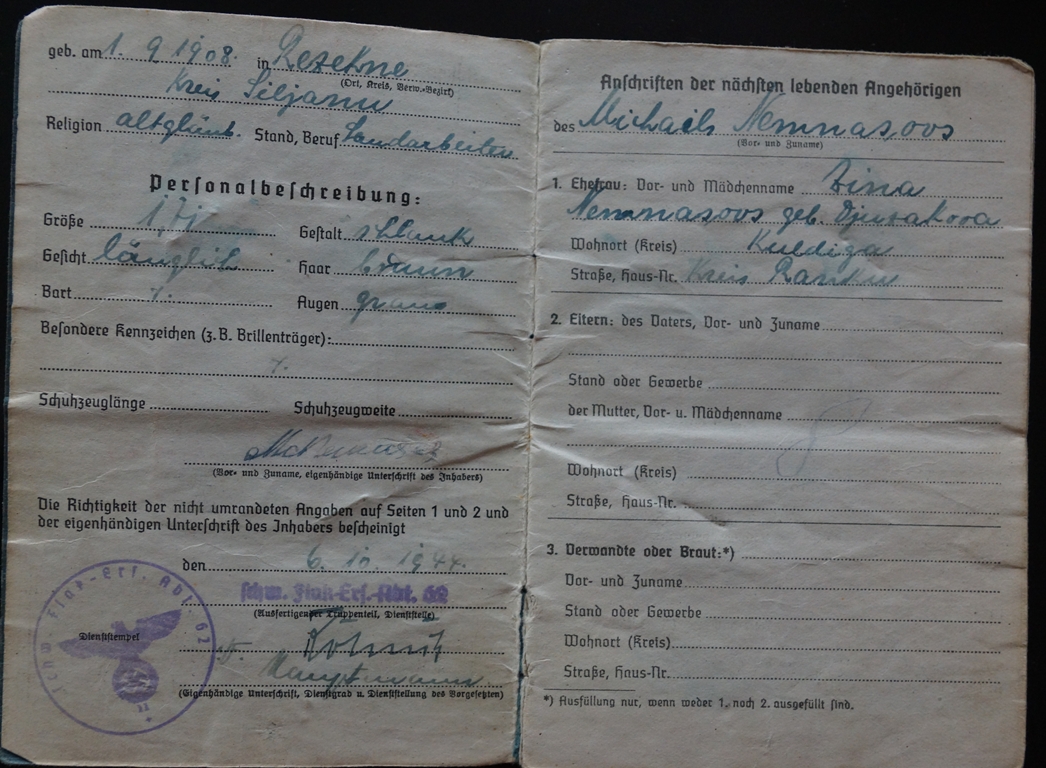 geb. am 1. 9 1908. in Rezekne
(Ort, Kreis, Verw.-Bezirk)
Kreis Siljanu
Religion altgläub. Stand, Beruf Landarbeiter
Personalbeschreibung:
Größe Gestalt schlank
Gesicht länglich Haar braun
Bart Augen grau
Besondere Kennzeichen (z. B. Brillenträger):
Schuhzeuglänge Schuhzeugweite
(Vor- und Zuname, eigenhändige Unterschrift des Inhabers)
Die Richtigkeit der nicht umrandeten Angaben auf Seiten 1 und 2 und
der eigenhändigen Unterschrift des Inhabers bescheinigt
den 6. 10. 1944.
schw. Flak-Ers.-Abt. 62
(Ausfertigender Truppenteil, Dienststelle)
schw. Flak-Ers. Abt. 62
Dienststempel
Hauptmann
(Eigenhändige Unterschrift, Dienstgrad u. Dienststellung des Vorgesetzten)
Anschriften der nächsten lebenden Angehörigen
des Michails Nemnasovs
(Vor- und Zuname)
1. Ehefrau: Vor- und Mädchenname Zina
Nemnasovs geb. Djusakova
Wohnort (Kreis) Kuldiga
Straße, Haus-Nr. Kreis Ranku
2. Eltern: des Vaters, Vor- und Zuname
Stand oder Gewerbe
der Mutter, Vor- u. Mädchenname
Wohnort (Kreis)
Straße, Haus-Nr.
3. Verwandte oder Braut:*)
Vor- und Zuname
Stand oder Gewerbe
Wohnort (Kreis)
Straße, Haus-Nr.
*) Ausfüllung nur, wenn weder 1. noch 2. ausgefüllt sind.